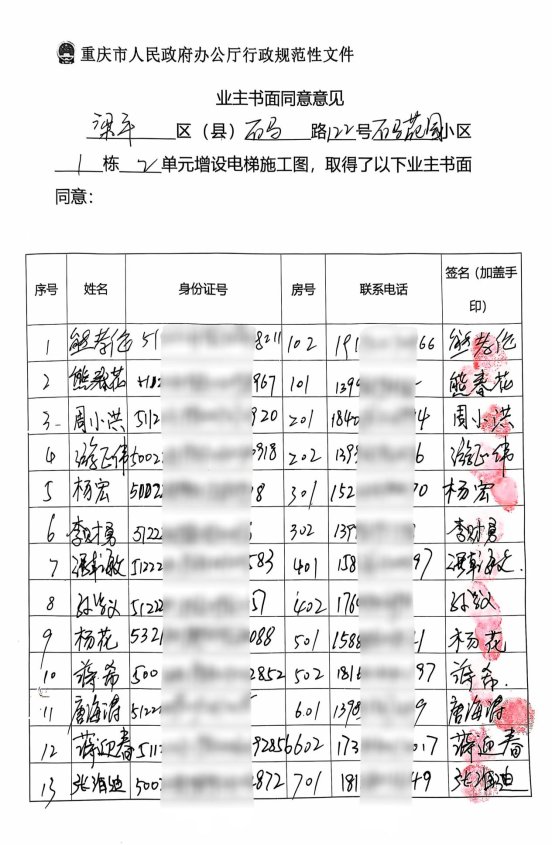 重庆市人民政府办公厅行政规范性文件
业主书面同意意见
梁平 区（县）石马 路122号石马花园小区
1 栋 2 单元增设电梯施工图，取得了以下业主书面
同意：
序号 姓名 身份证号 房号 联系电话 签名（加盖手印）
1 熊孝伦 51 8211 102 191 66 熊孝伦
2 熊春花 967 101 139 熊春花
3 周小洪 512 920 201 1840 4 周小洪
4 游正伟 5002 0918 202 139 6 游正伟
5 杨宏 5002 8 301 152 70 杨宏
6 李财勇 51222 302 139 李财勇
7 51222 583 401 158 97
8 51222 57 402 176
9 杨花 5321 088 501 1588 1 杨花
10 蒋希 500 2852 502 181 97 蒋希
11 唐海涛 5122 601 139 9 唐海涛
12 蒋迎春 511 9285 602 173 017 蒋迎春
13 张海迪 500 872 701 181 49 张海迪